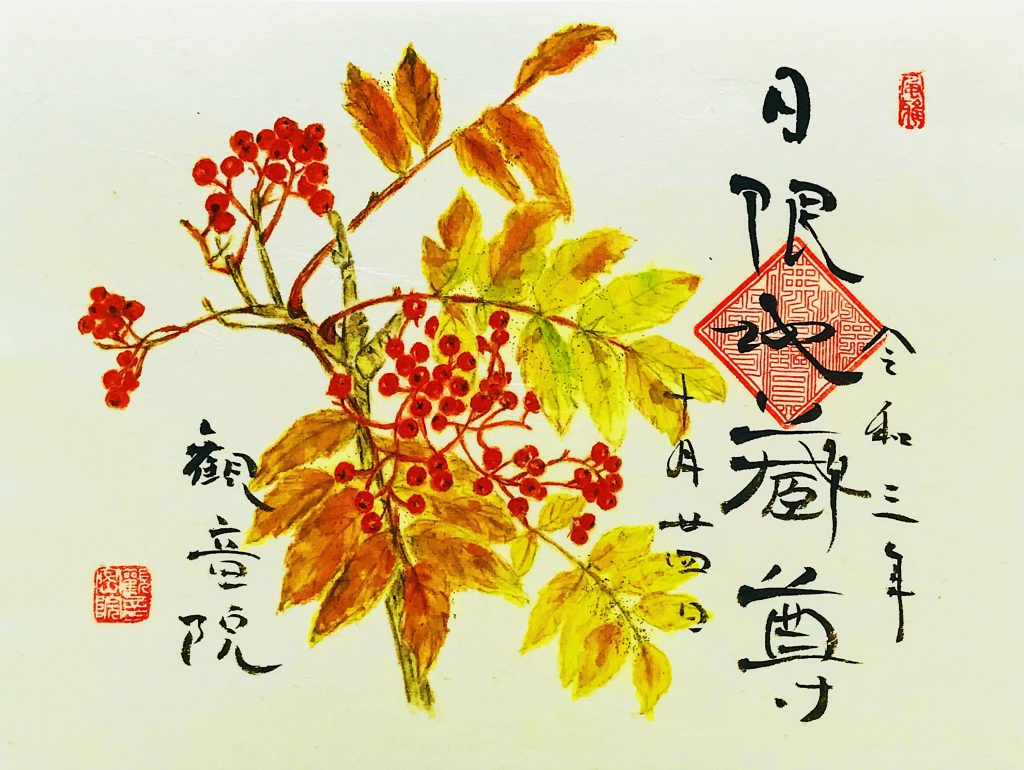 令和三年
日限地蔵尊
十月廿四日
観音院
觀音院